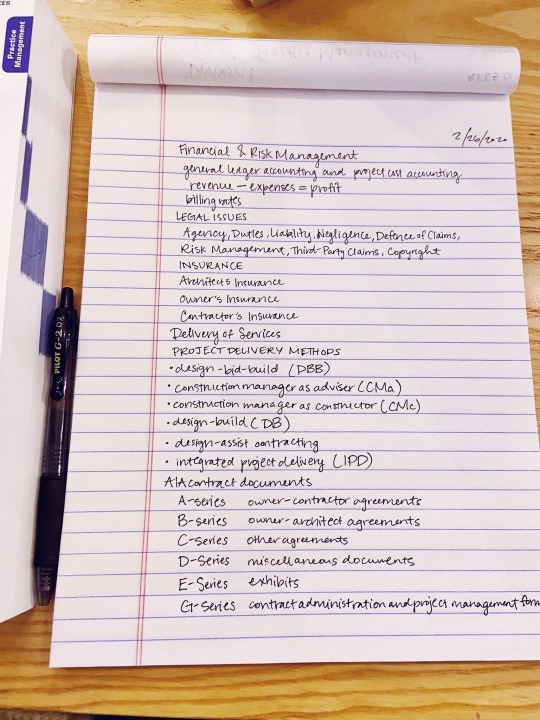 Practice
Management
2/26/2020
Financial & Risk Management
general ledger accounting and project cost accounting
revenue – expenses = profit
billing rates
LEGAL ISSUES
Agency, Duties, Liability, Negligence, Defence of Claims,
Risk Management, Third-Party Claims, Copyright
INSURANCE
Architect's Insurance
Owner's Insurance
Contractor's Insurance
Delivery of Services
PROJECT DELIVERY METHODS
• design-bid-build (DBB)
• construction manager as adviser (CMa)
• construction manager as constructor (CMc)
• design-build (DB)
• design-assist contracting
• integrated project delivery (IPD)
AIA contract documents
A-series owner-contractor agreements
B-series owner-architect agreements
C-series other agreements
D-Series miscellaneous documents
E-Series exhibits
G-Series contract administration and project management form
PILOT G-2 07